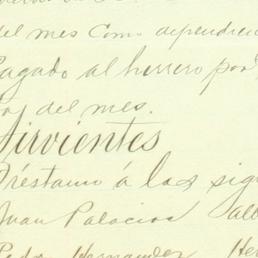 del mes como dependien
Pagado al herrero por
del mes.
Sirvientes
Préstamo á los sig
Juan Palacios
Pedro Hernandez He